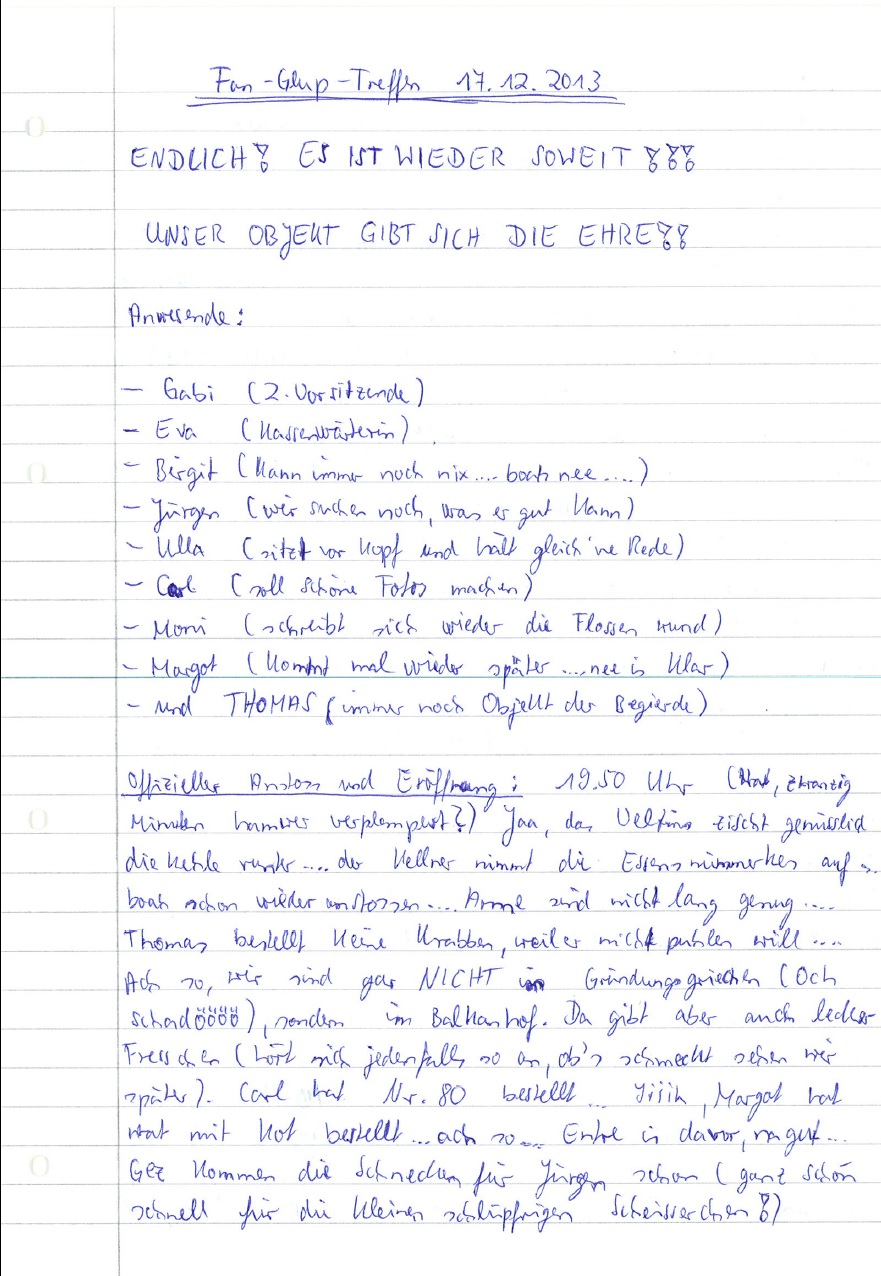 Fan-Glup-Treffen 17.12.2013
ENDLICH! ES IST WIEDER SOWEIT!!!
UNSER OBJEKT GIBT SICH DIE EHRE!!
Anwesende:
- Gabi (2. Vorsitzende)
- Eva (Kassenwärterin)
- Birgit (Kann immer noch nix.... boah nee....)
- Jürgen (wir suchen noch, was er gut kann)
- Ulla (sitzt vor Kopf und hält gleich 'ne Rede)
- Carl (soll schöne Fotos machen)
- Moni (schreibt sich wieder die Flossen wund)
- Margot (kommt mal wieder später ....nee is klar)
- und THOMAS (immer noch Objekt der Begierde)
Offizieller Anstoss und Eröffnung: 19.50 Uhr (Wat, zwanzig
Minuten hammwer verplempert?) Jaa, das Veltins zischt genüsslich
die Kehle runter .... der Kellner nimmt die Essensnümmerkes auf ...
boah schon wieder anstossen.... Arme sind nicht lang genug ....
Thomas bestellt keine Krabben, weil er nicht puhlen will ....
Ach so, wir sind gar NICHT im Gründungsgriechen (Och
schadöööö), sondern im Balkanhof. Da gibt aber auch lecker
Fresschen (hört sich jedenfalls so an, ob's schmeckt sehen wir
später). Carl hat Nr. 80 bestellt ... Iiiih, Margot hat
wat mit Kot bestellt ... ach so ... Entre is davor, na gut ...
Gez kommen die Schnecken für Jürgen schon (ganz schön
schnell für die kleinen schlüpfrigen Scheisserchen!)